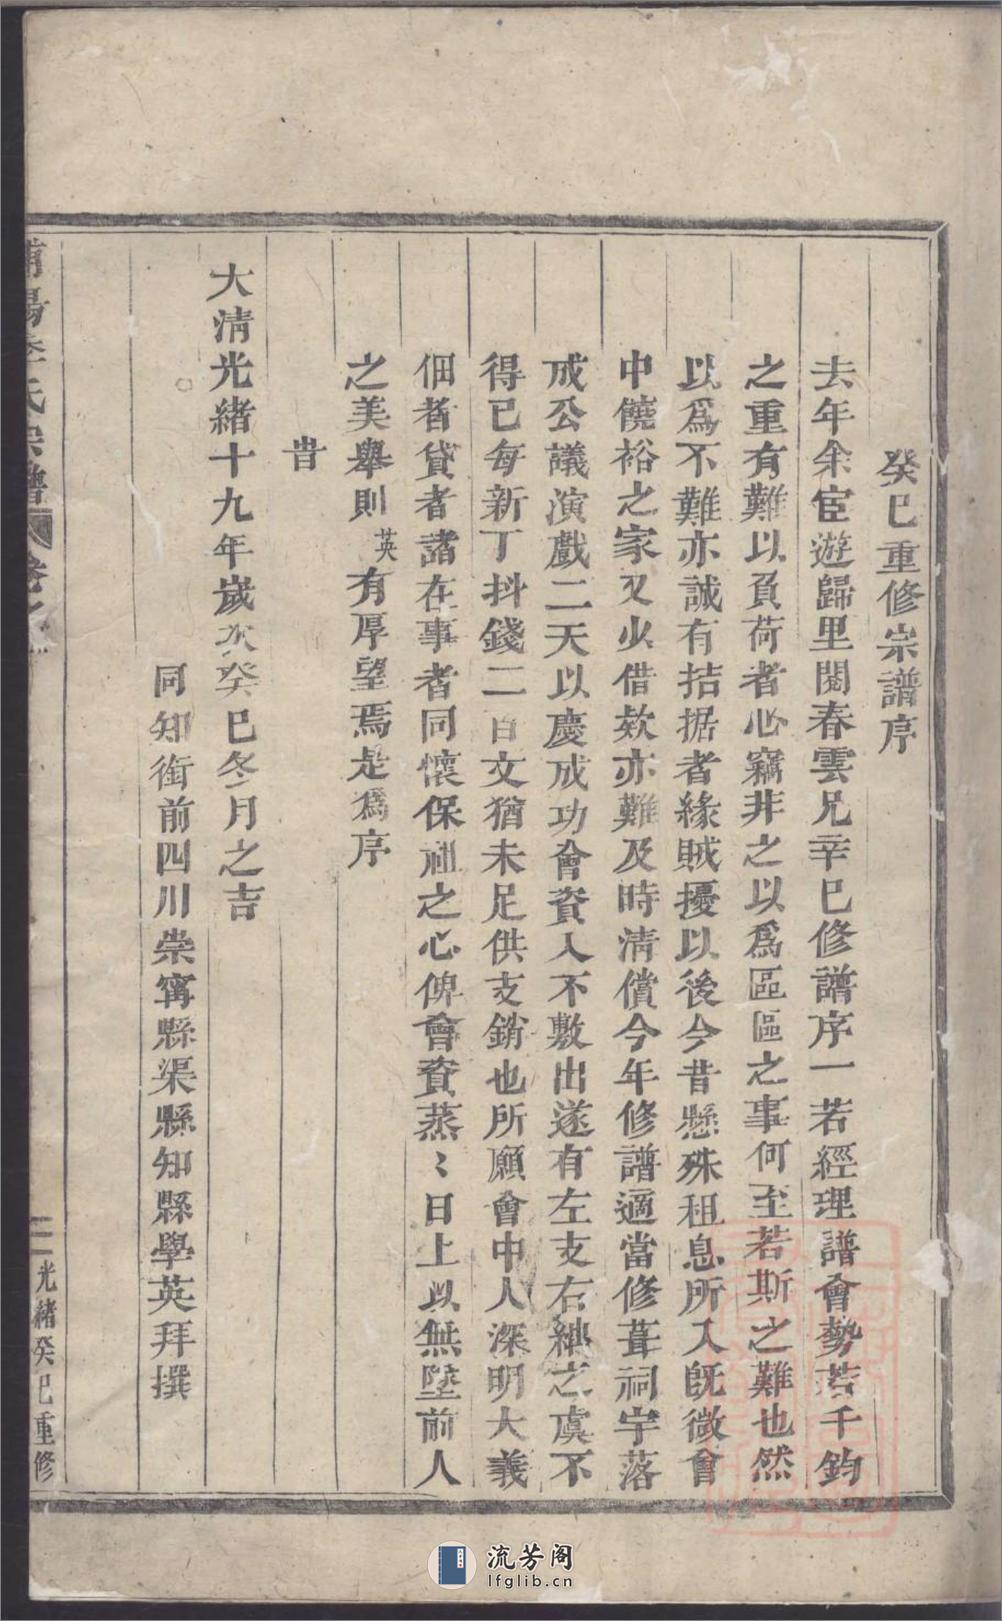 癸巳重修宗譜序
去年余宦遊歸里閱春雲兄辛巳修譜序一若經理譜會勢若千鈞
之重有難以負荷者心竊非之以爲區區之事何至若斯之難也然
以爲不難亦誠有拮据者緣賊擾以後今昔懸殊租息所入既微會
中饒裕之家又少借欵亦難及時清償今年修譜適當修葺祠宇落
成公議演戲二天以慶成功會資入不敷出遂有左支右絀之虞不
得已每新丁抖錢二百文猶未足供支銷也所願會中人深明大義
佃者貸者諸在事者同懷保祖之心俾會資蒸〻日上以無墜前人
之美舉則英有厚望焉是爲序
旹
大清光緒十九年歲次癸巳冬月之吉
同知銜前四川崇寗縣渠縣知縣學英拜撰
陽李氏宗譜 卷之
二 光緒癸巳重修
流芳阁
lfglib.cn